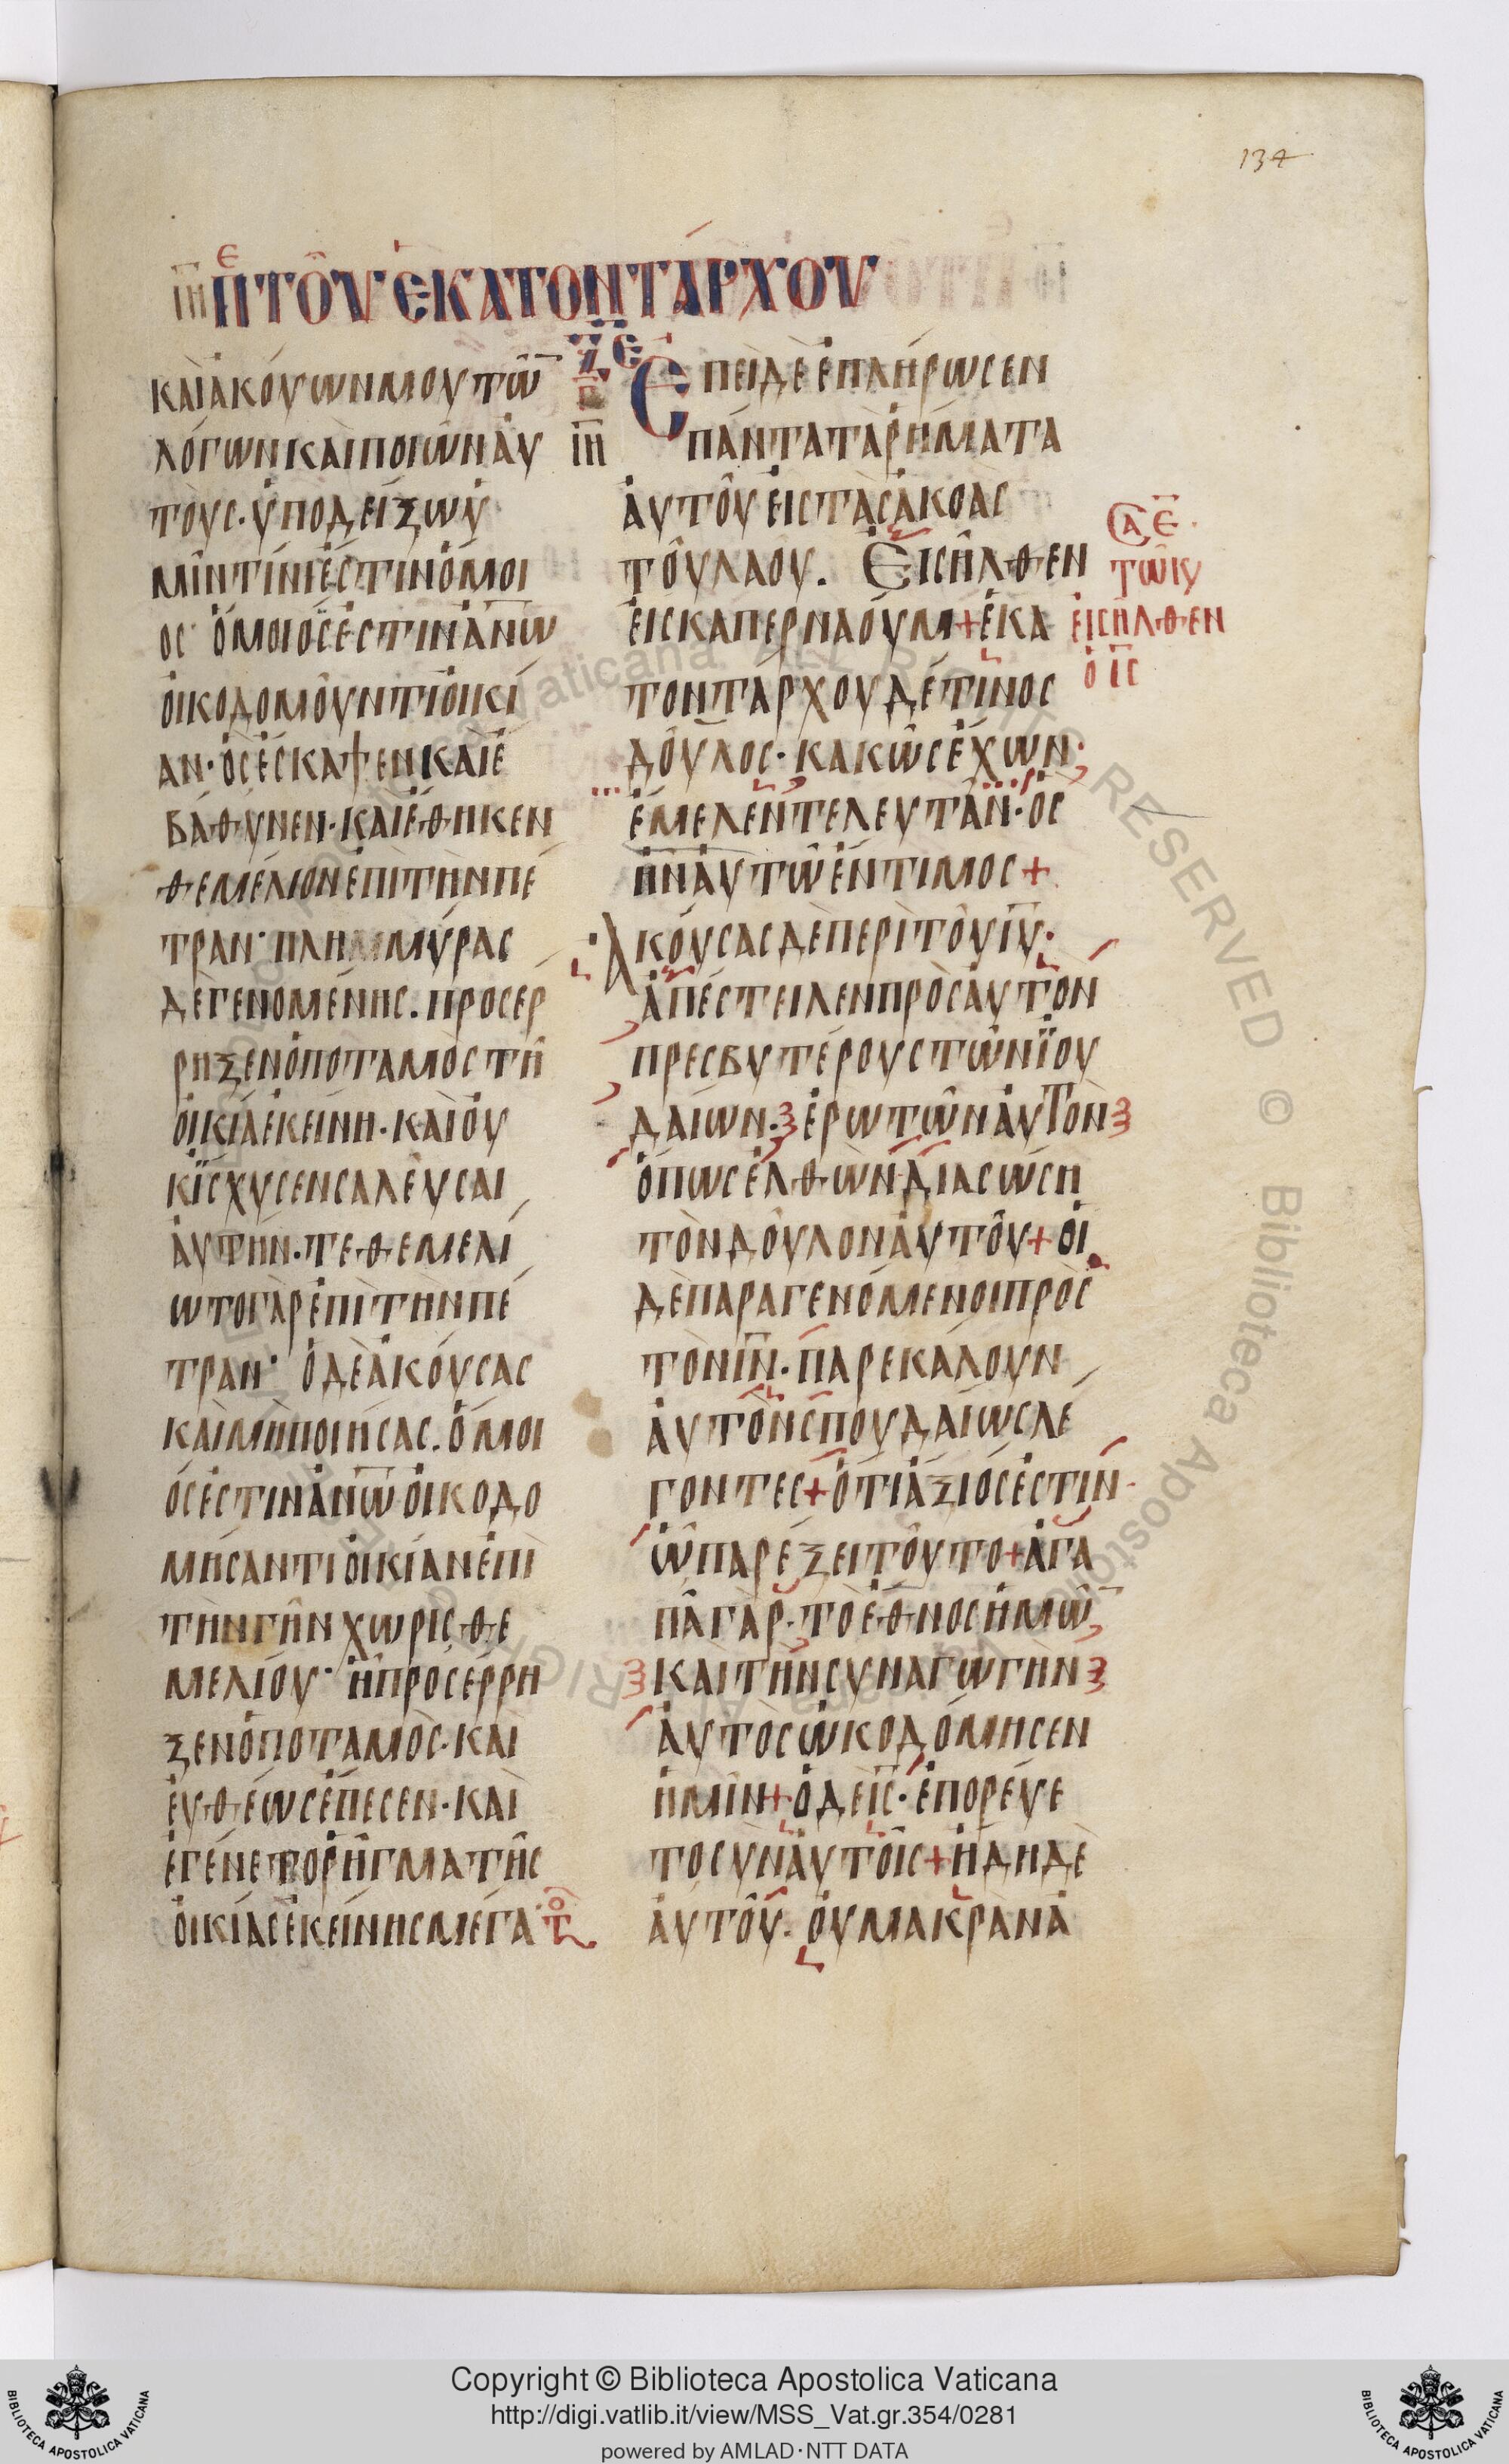 134
ιη Πε ΤΟῦ ἙΚΑΤΟΝΤΆΡΧΟΥ
ΚΑῚ ἈΚΟΎΩΝ ΜΟΥ ΤῶΝ̅
ΛΌΓΩΝ ΚΑῚ ΠΟΙῶΝ ἈΥ
ΤΟῪΣ· ὙΠΟΔΕΊΞΩ Ὑ
ΜῖΝ ΤΊΝΙ ἘΣΤῚΝ ὍΜΟΙ
ΟΣ· ὍΜΟΙΟΣ ἘΣΤῚΝ ἈΝ̅Ω̅
ΟἸΚΟΔΟΜΟῦΝΤΙ ΟἸΚΊ
ΑΝ· ὋΣ ἜΣΚΑΨΕΝ ΚΑῚ Ἐ
ΒΆΘΥΝΕΝ· ΚΑῚ ἜΘΗΚΕΝ
ΘΕΜΈΛΙΟΝ ἘΠῚ ΤῊΝ ΠΈ
ΤΡΑΝ· ΠΛΗΜΜΎΡΑΣ
ΔῈ ΓΕΝΟΜΈΝΗΣ. ΠΡΟΣΕΡ
ΡΗΞΕΝ Ὁ ΠΟΤΑΜῸΣ Τῆ
ΟἸΚΊΑ ἘΚΕΊΝΗ· ΚΑῚ ΟΥ
Κ ἼΣΧΥΣΕΝ ΣΑΛΕῦΣΑΙ
ἈΥΤΉΝ· ΤΕΘΕΜΕΛΊ
ΩΤΟ ΓᾺΡ ἘΠῚ ΤῊΝ ΠΈ
ΤΡΑΝ· Ὁ ΔῈ ἈΚΟΎΣΑΣ
ΚΑῚ ΜῊ ΠΟΙΉΣΑΣ. ὍΜΟΙ
ΌΣ ἘΣΤΙΝ ἈΝ̅Ω̅ ΟἸΚΟΔΟ
ΜΉΣΑΝΤΙ ΟἸΚΊΑΝ ἘΠῚ
ΤῊΝ ΓῆΝ ΧΩΡΙΣ ΘΕ
ΜΕΛΊΟΥ· Ἡ ΠΡΟΣΈΡΡΗ
ΞΕΝ Ὁ ΠΟΤΑΜῸΣ· ΚΑῚ
ἘΥΘΈΩΣ ἜΠΕΣΕΝ· ΚΑῚ
ἘΓΈΝΕΤΟ Ῥῆ̔ΓΜΑ ΤῆΣ
ΟἸΚΊΑΣ ἘΚΕΊΝΗΣ ΜΈΓΑ·
ΞΕ
ΙΗ
ἘΠΕΙ ΔῈ ἘΠΛΉΡΩΣΕΝ
ΠΆΝΤΑ ΤᾺ ῬΉΜΑΤΑ
ἈΥΤΟῦ ἘΙΣ ΤᾺΣ ἈΚΟᾺΣ
ΤΟῦ ΛΑΟῦ. ἘΙΣῆΛΘΕΝ
ἘΙΣ ΚΑΠΕΡΝΑΟΎΜ+ἙΚΑ
ΤΟΝΤΆΡΧΟΥ ΔΈ ΤΙΝΟΣ
ΔΟῦΛΟΣ· ΚΑΚῶΣ ἜΧΩΝ·
ἜΜΕΛΕΝ ΤΕΛΕΥΤᾶΝ· ὋΣ
ἦΝ ἈΥΤῶ ἜΝΤΙΜΟΣ+
ἈΚΟΎΣΑΣ ΔῈ ΠΕΡῚ ΤΟῦ ΙΥ̅·
ἈΠΈΣΤΕΙΛΕΝ ΠΡῸΣ ἈΥΤῸΝ
ΠΡΕΣΒΥΤΈΡΟΥΣ ΤῶΝ ἸΟΥ
ΔΑΊΩΝ· ἘΡΩΤῶΝ ἈΥΤῸΝ
ὍΠΩΣ ἘΛΘῺΝ ΔΙΑΣΏΣΗ
ΤῸΝ ΔΟῦΛΟΝ ἈΥΤΟῦ+ΟΙ
ΔῈ ΠΑΡΑΓΕΝΌΜΕΝΟΙ ΠΡῸΣ
ΤῸΝ ΙΝ̅· ΠΑΡΕΚΆΛΟΥΝ
ἈΥΤῸΝ ΣΠΟΥΔΑΊΩΣ ΛΈ
ΓΟΝΤΕΣ+ὍΤΙ ἌΞΙΌΣ ἘΣΤΙΝ·
ᾧ ΠΑΡΈΞΕΙ ΤΟῦΤΟ+ἈΓΑ
Πᾶ ΓᾺΡ· ΤῸ ἜΘΝΟΣ ἩΜῶΝ̅
ΚΑῚ ΤῊΝ ΣΥΝΑΓΩΓῊΝ
ἈΥΤῸΣ ὨΚΟΔΌΜΗΣΕΝ
ἩΜῖΝ+Ὁ ΔῈ ΙΣ̅· ἘΠΟΡΕΎΕ
ΤΟ ΣῪΝ ἈΥΤΟῖΣ+ἬΔΗ ΔῈ
ἈΥΤΟῦ. ΟΥ ΜΑΚΡᾺΝ Ἀ
ΣΑ Ε̅·
Τῶ ΚΑΙΡῶ
ἘΙΣῆΛΘΕΝ
Ὁ ΙΣ̅
Copyright © Biblioteca Apostolica Vaticana
http://digi.vatlib.it/view/MSS_Vat.gr.354/0281
powered by AMLAD·NTT DATA
BIBLIOTECA APOSTOLICA VATICANA
BIBLIOTECA APOSTOLICA VATICANA